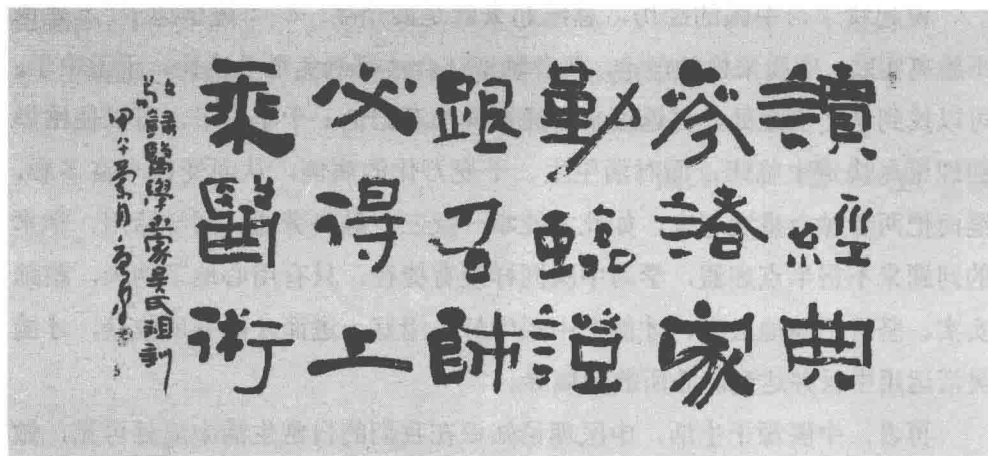 讀經典
參諸家
勤臨證
跟名師
必得上
乘醫術
錄醫學家吳氏祖訓
月